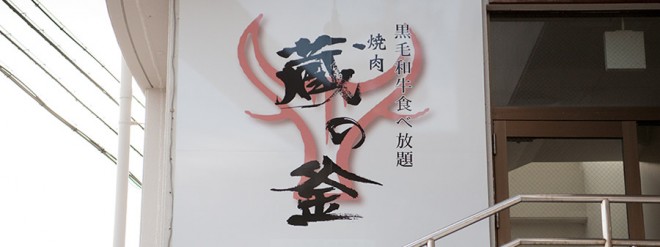 黒毛和牛食べ放題
焼肉
蔵の釜